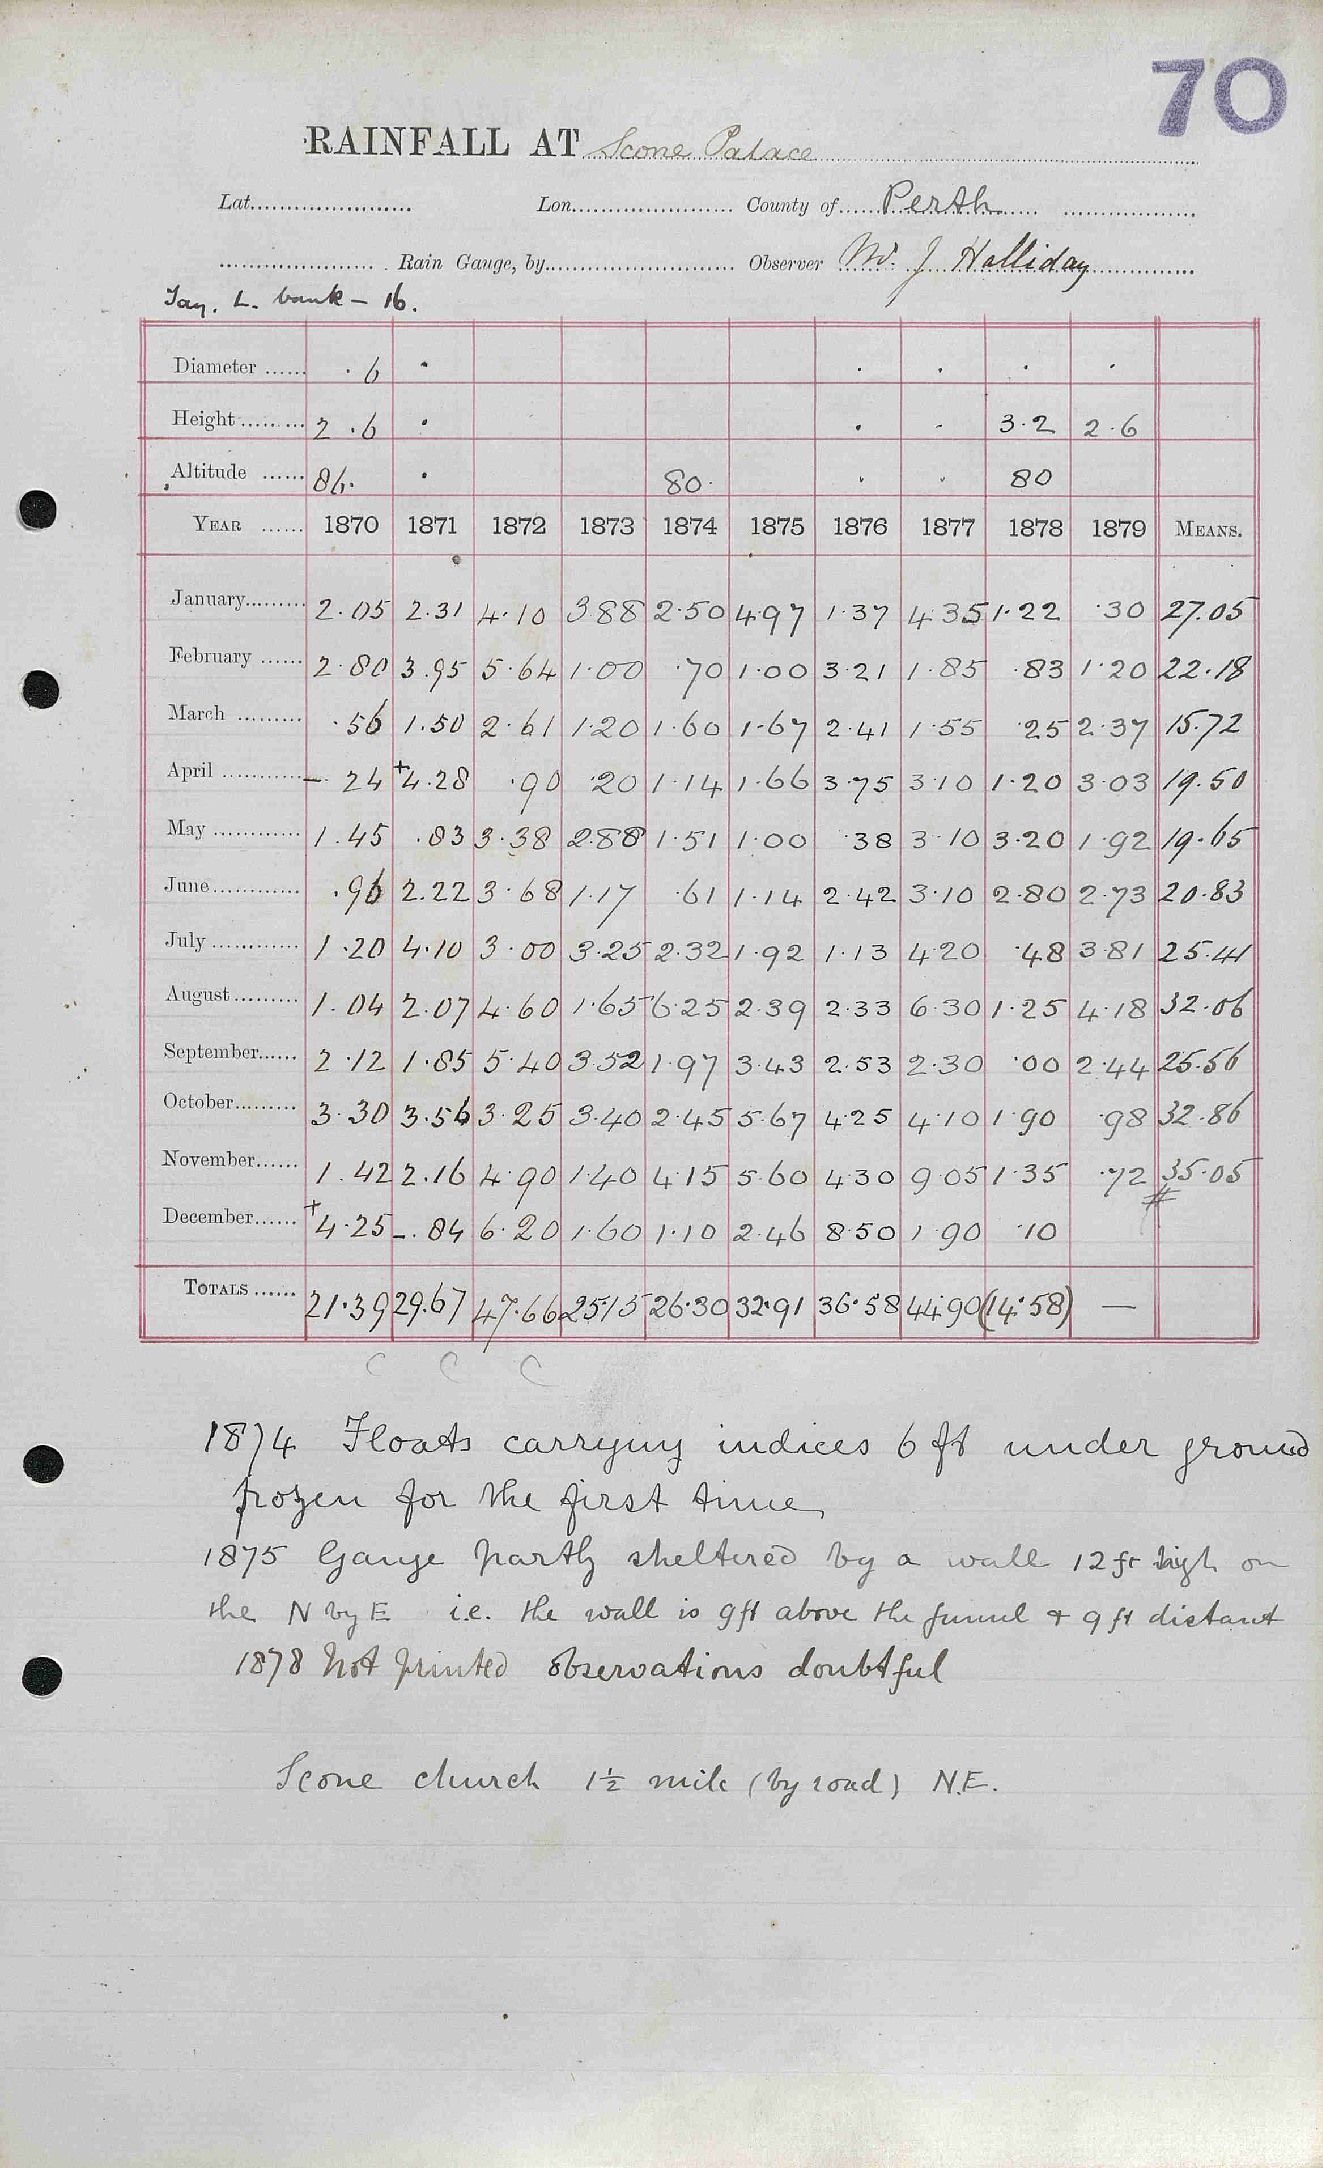 70
RAINFALL AT Scone Palace
Lat. Lon. County of Perth
Rain Gauge, by Observer W. J Halliday
Tay. L. bank – 16.
Diameter ...... ·6 · · · · ·
Height ......... 2·6 · · · 3·2 2·6
Altitude ...... 86· · 80· · · 80
YEAR ...... 1870 1871 1872 1873 1874 1875 1876 1877 1878 1879 MEANS.
January......... 2·05 2·31 4·10 3 88 2·50 4·97 1·37 4·35 1·22 ·30 27.05
February ...... 2·80 3.95 5·64 1·00 ·70 1·00 3·21 1·85 ·83 1·20 22·18
March ......... ·56 1.50 2·61 1·20 1·60 1·67 2·41 1·55 ·25 2·37 15.72
April ............ – 24 +4·28 ·90 ·20 1·14 1·66 3·75 3·10 1·20 3·03 19·50
May ............ 1·45 ·83 3·38 2·88 1·51 1·00 ·38 3·10 3·20 1·92 19·65
June............ ·96 2.22 3·68 1·17 ·61 1·14 2·42 3·10 2·80 2·73 20·83
July ............ 1·20 4·10 3·00 3·25 2·32 1·92 1·13 4·20 ·48 3·81 25·41
August ......... 1·04 2·07 4·60 1·65 6·25 2·39 2·33 6·30 1·25 4·18 32·06
September...... 2·12 1·85 5·40 3·52 1·97 3·43 2·53 2·30 ·00 2·44 25·56
October......... 3·30 3·56 3·25 3·40 2·45 5·67 4·25 4·10 1·90 ·98 32·86
November...... 1·42 2·16 4·90 1·40 4·15 5·60 4·30 9·05 1·35 ·72 35·05
#
December...... +4·25 –·84 6·20 1·60 1·10 2·46 8·50 1·90 ·10
TOTALS ...... 21·39 29.67 47·66 25·15 26·30 32·91 36·58 44·90 (14·58) —
C C C
1874 Floats carrying indices 6 ft under ground
frozen for the first time
1875 Gauge partly sheltered by a wall 12 ft high on
the N by E i.e. the wall is 9ft above the funnel + 9 ft distant
1878 Not printed observations doubtful
Scone church 1½ mile (by road) N.E.